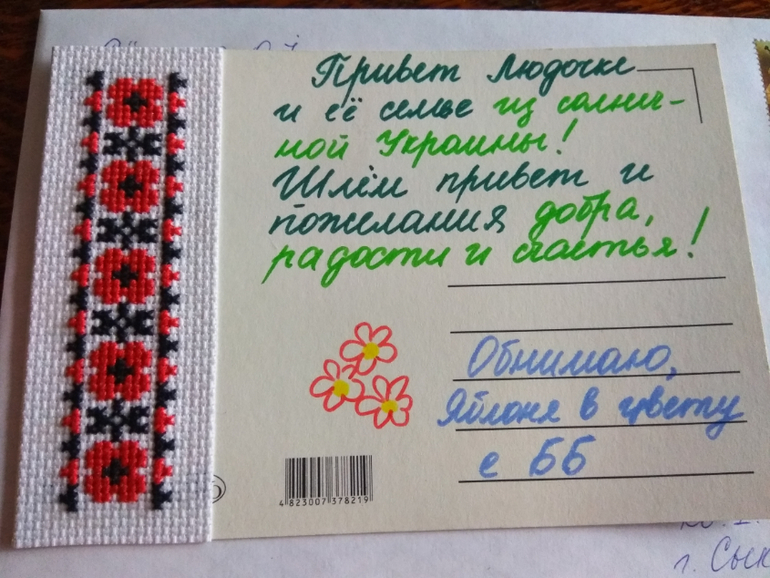 Привет Людочке
и её семье из солнеч-
ной Украины!
Шлём привет и
пожелания добра,
радости и счастья!
Обнимаю,
Яблоня в цвету
с ББ
4 823007 378219
г. Сык